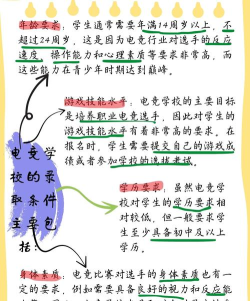 年龄要求：学生通常需要年满14周岁以上，不
超过24周岁，这是因为电竞行业对选手的反应
速度、操作能力和心理素质等要求非常高，而
这些能力在青少年时期达到巅峰。
游戏技能水平：电竞学校的主要目标
是培养职业电竞选手，因此对学生的
游戏技能水平有着非常高的要求。在
报名时，学生需要提交自己的游戏成
绩或者参加学校的选拔考试。
电竞学
校的录
取条件
主要包
括：
学历要求：虽然电竞学
校对学生的学历要求相
对较低，但一般要求学
生至少具备初中及以上
学历。
身体素质：电竞比赛对选手的身体素质也有一
定的要求，例如需要具备良好的视力和反应能